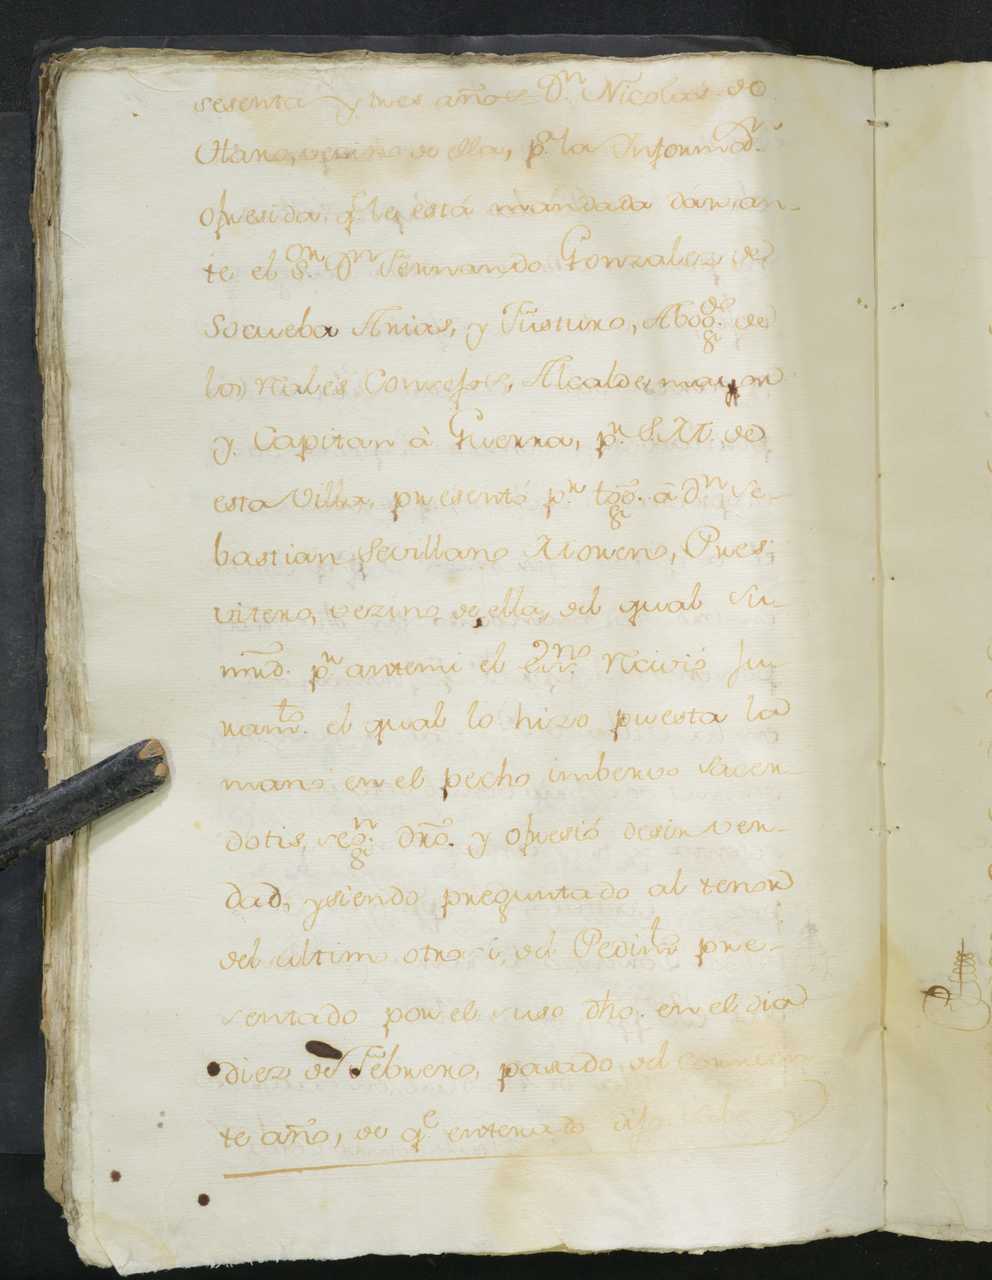 sesenta y tres años Dn. Nicolas de
Otano, vecino de ella, pa. la Informon.
ofresida qe. le está mandada dár, an-
te el Sr. Dn Fernando Gonzalez de
Socueba Arias, y Fusturo, Abogdo. de
los Rales Consejos, Alcalde mayor
y Capitan à Guerra, pr. S. M. de
esta Villa, presentó pr. tgo. â Dn. Se-
bastian Sevillano Moreno, Pres-
vitero, vezino de ella, del qual su
mrd. pr antemi el Esno. Recivió Ju-
ramto. el qual lo hizo puesta la
mano en el pecho inberbo Sacer-
dotis, segn. dro. y ofresió desir ver-
dad, y siendo preguntado al tenor
del ultimo otro si, del Pedimto pre-
sentado por el suso dho. en el dia
diez de Febrero, pasado del corrien-
te año, de qe. enterado